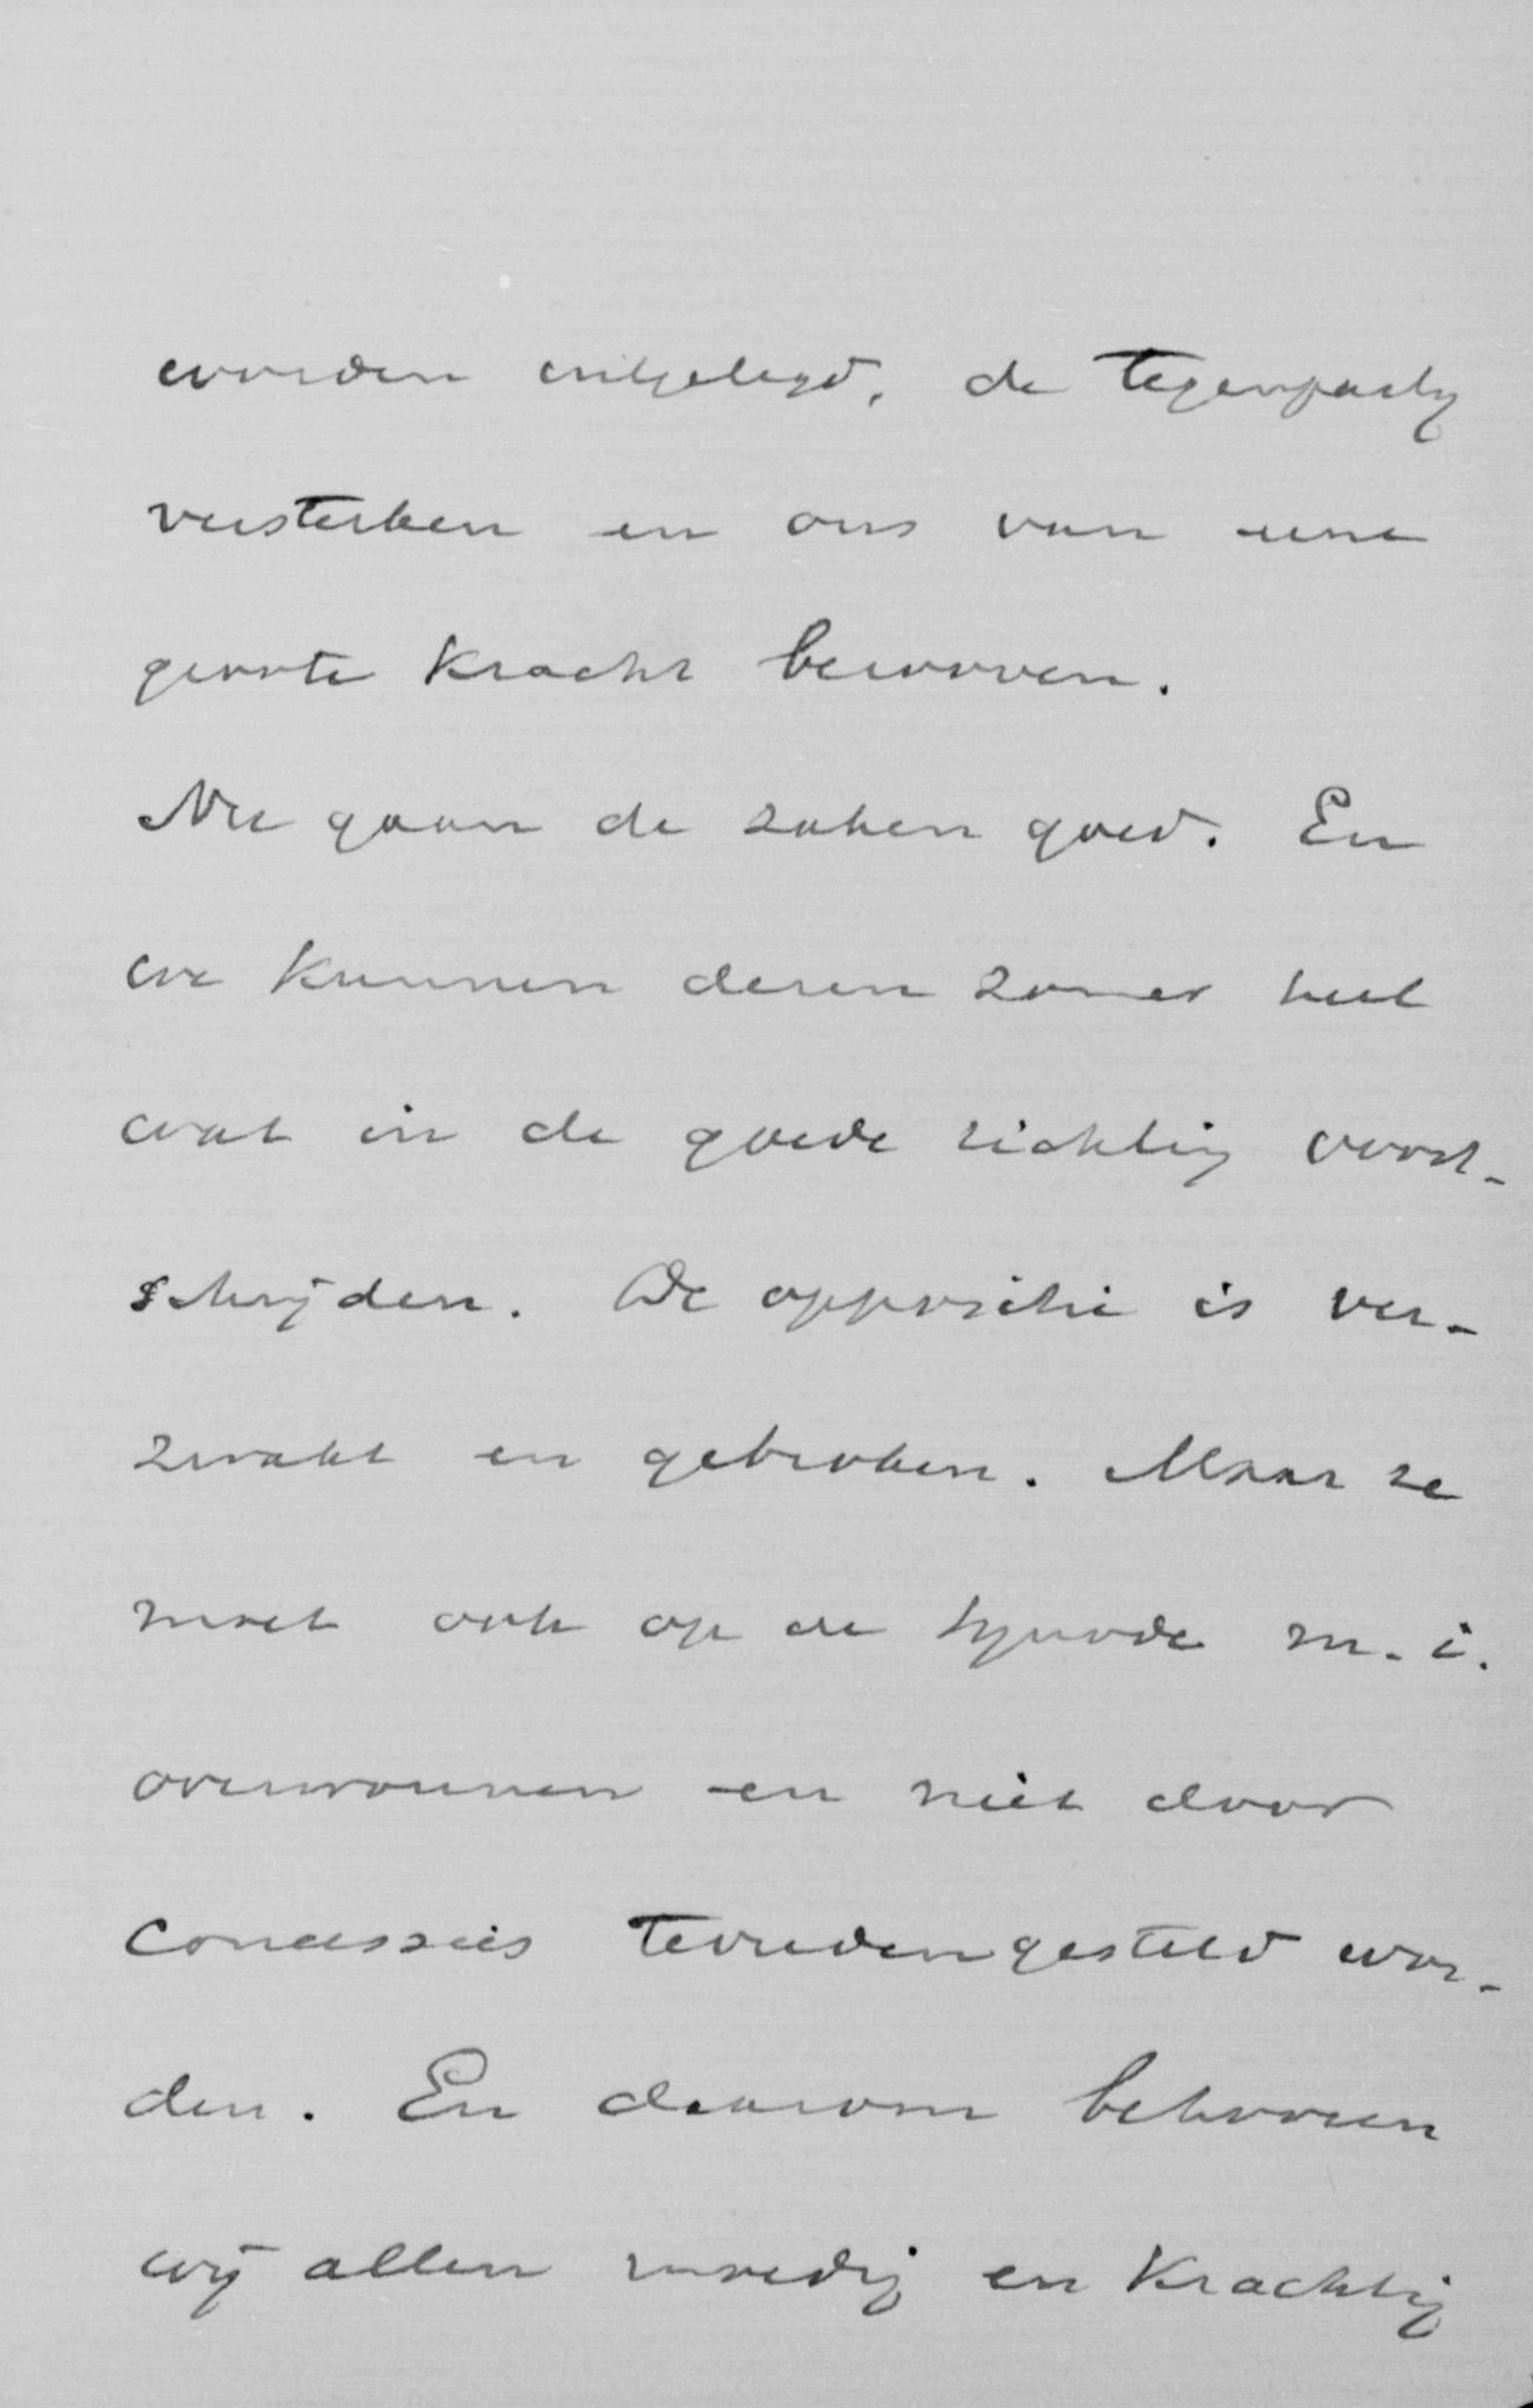 worden uitgelegd, de tegenparty
versterken en ons van eene
groote kracht berooven.
Nu gaan de zaken goed. En
we kunnen dezen zomer heel
wat in de goede richting voort-
schrijden. De oppositie is ver-
zwakt en gebroken. Maar ze
moet ook op de synode m.i.
overwonnen en niet door
concessies tevredengesteld wor-
den. En daarom behooren
wij allen moedig en krachtig